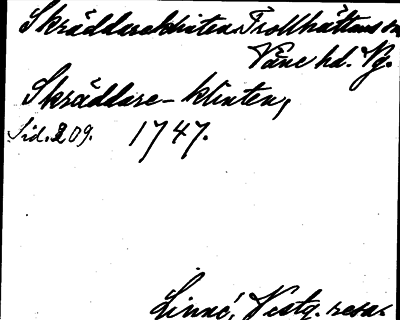 Skräddareklinten Trollhättans sn
Väne hd. Vg.
Skräddare-klinten,
Sid. 209. 1747.
Linné, Västg. resa